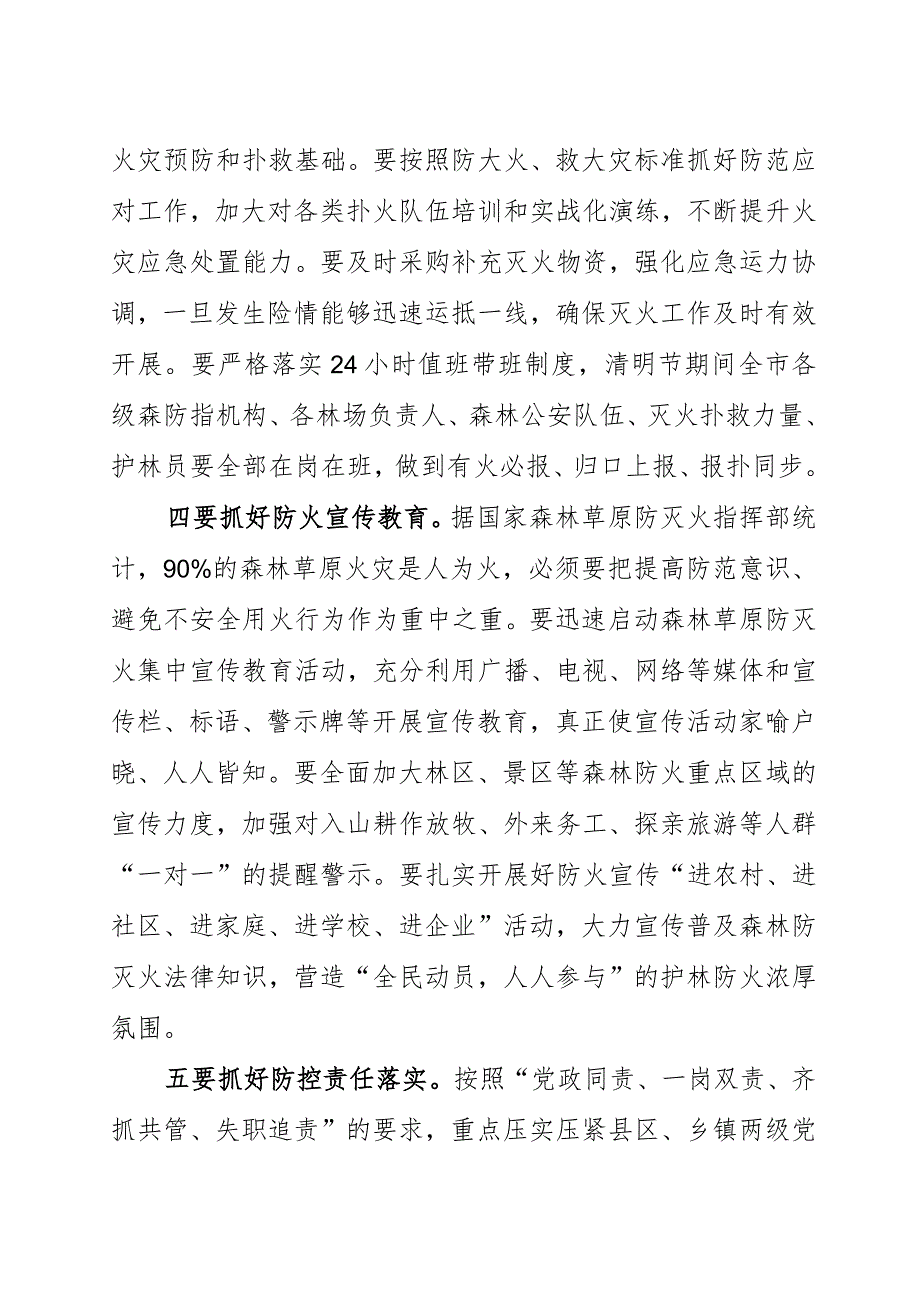 火灾预防和扑救基础。要按照防大火、救大灾标准抓好防范应
对工作，加大对各类扑火队伍培训和实战化演练，不断提升火
灾应急处置能力。要及时采购补充灭火物资，强化应急运力协
调，一旦发生险情能够迅速运抵一线，确保灭火工作及时有效
开展。要严格落实24小时值班带班制度，清明节期间全市各
级森防指机构、各林场负责人、森林公安队伍、灭火扑救力量、
护林员要全部在岗在班，做到有火必报、归口上报、报扑同步。
四要抓好防火宣传教育。据国家森林草原防灭火指挥部统
计，90%的森林草原火灾是人为火，必须要把提高防范意识、
避免不安全用火行为作为重中之重。要迅速启动森林草原防灭
火集中宣传教育活动，充分利用广播、电视、网络等媒体和宣
传栏、标语、警示牌等开展宣传教育，真正使宣传活动家喻户
晓、人人皆知。要全面加大林区、景区等森林防火重点区域的
宣传力度，加强对入山耕作放牧、外来务工、探亲旅游等人群
“一对一”的提醒警示。要扎实开展好防火宣传“进农村、进
社区、进家庭、进学校、进企业”活动，大力宣传普及森林防
灭火法律知识，营造“全民动员，人人参与”的护林防火浓厚
氛围。
五要抓好防控责任落实。按照“党政同责、一岗双责、齐
抓共管、失职追责”的要求，重点压实压紧县区、乡镇两级党